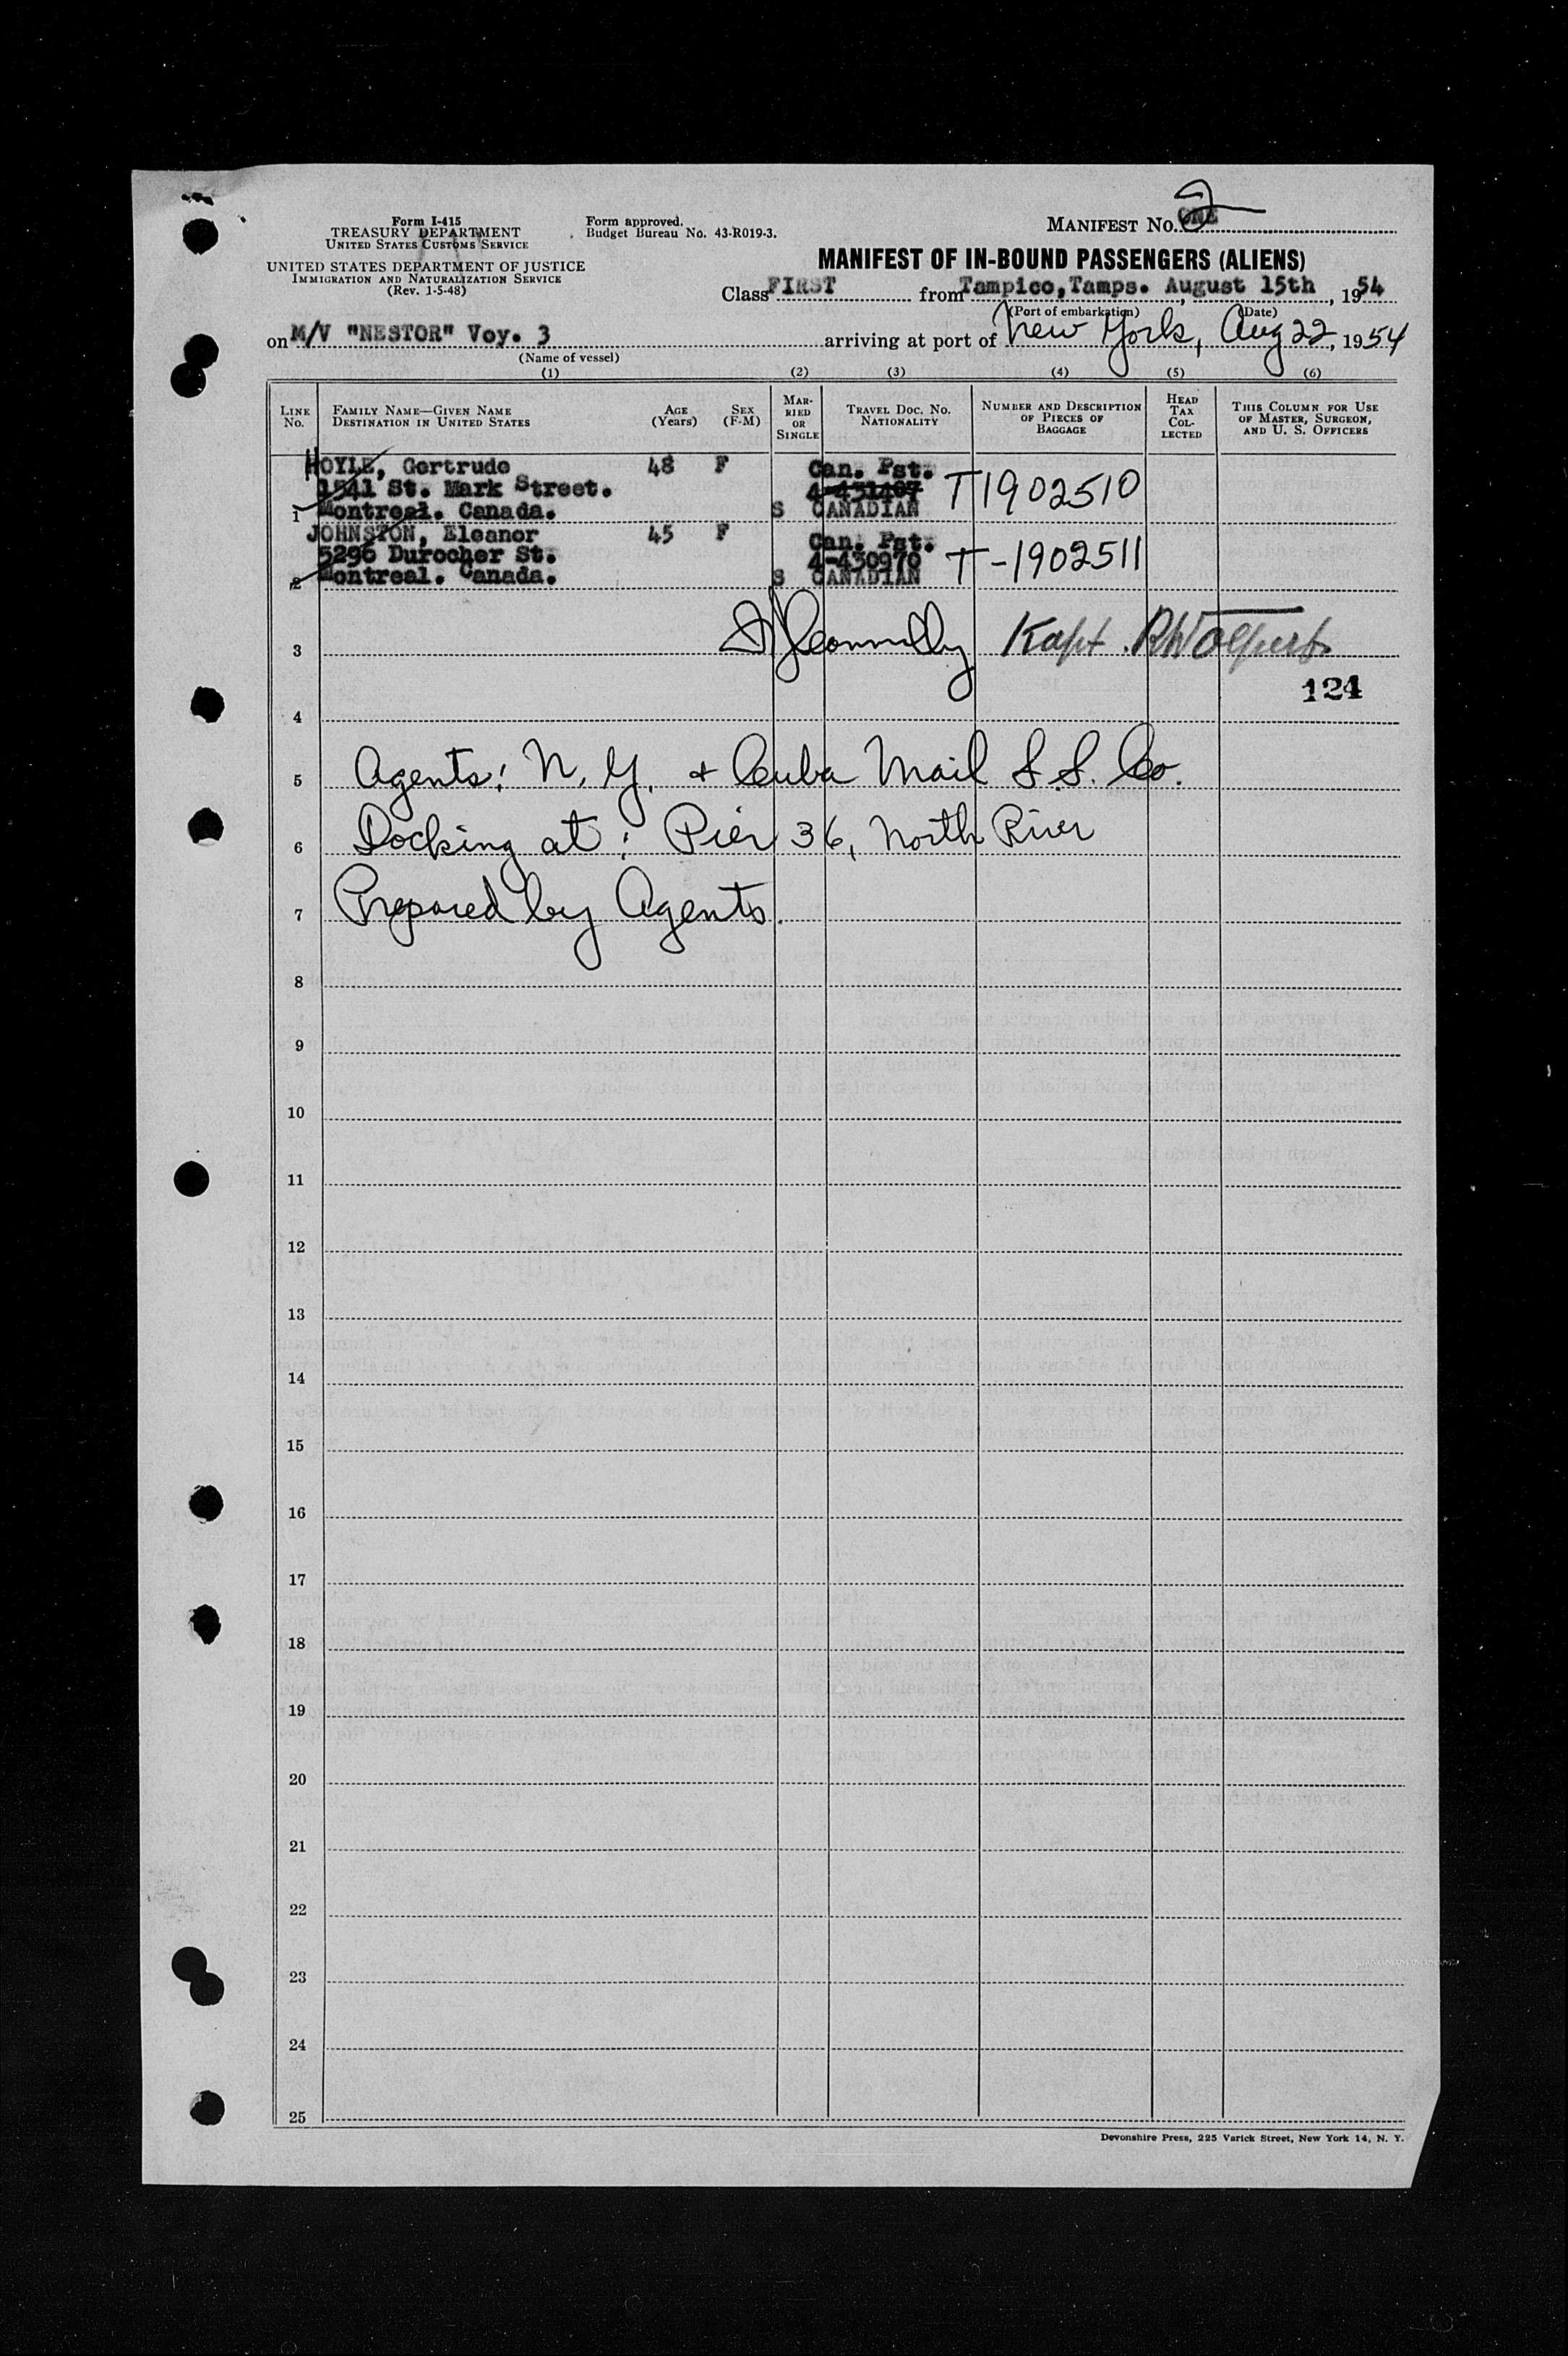 Form I-415
TREASURY DEPARTMENT
UNITED STATES CUSTOMS SERVICE
UNITED STATES DEPARTMENT OF JUSTICE
IMMIGRATION AND NATURALIZATION SERVICE
(Rev. 1-5-48)
Form approved.
Budget Bureau No. 43-R019-3.
MANIFEST No. ONE 2
MANIFEST OF IN-BOUND PASSENGERS (ALIENS)
Class FIRST from Tampico, Tamps. August 15th, 1954
(Port of embarkation) (Date)
on M/V "NESTOR" Voy. 3 arriving at port of New York, Aug 22, 1954
(Name of vessel)
(1) (2) (3) (4) (5) (6)
LINE No. FAMILY NAME—GIVEN NAME DESTINATION IN UNITED STATES AGE (Years) SEX (F-M) MARRIED OR SINGLE TRAVEL DOC. No. NATIONALITY NUMBER AND DESCRIPTION OF PIECES OF BAGGAGE HEAD TAX COLLECTED THIS COLUMN FOR USE OF MASTER, SURGEON, AND U. S. OFFICERS
HOYLE, Gertrude 48 F Can. Pst.
1541 St. Mark Street. 4-431407 T1902510
1 Montreal. Canada. S CANADIAN
JOHNSTON, Eleanor 45 F Can. Pst.
5296 Durocher St. 4-430970 T-1902511
2 Montreal. Canada. S CANADIAN
3 Connolly Kapt.
124
4
5 Agents: N.Y. & Cuba Mail S.S. Co.
6 Docking at: Pier 36, North River
7 Prepared by Agents.
8
9
10
11
12
13
14
15
16
17
18
19
20
21
22
23
24
25
Devonshire Press, 225 Varick Street, New York 14, N. Y.